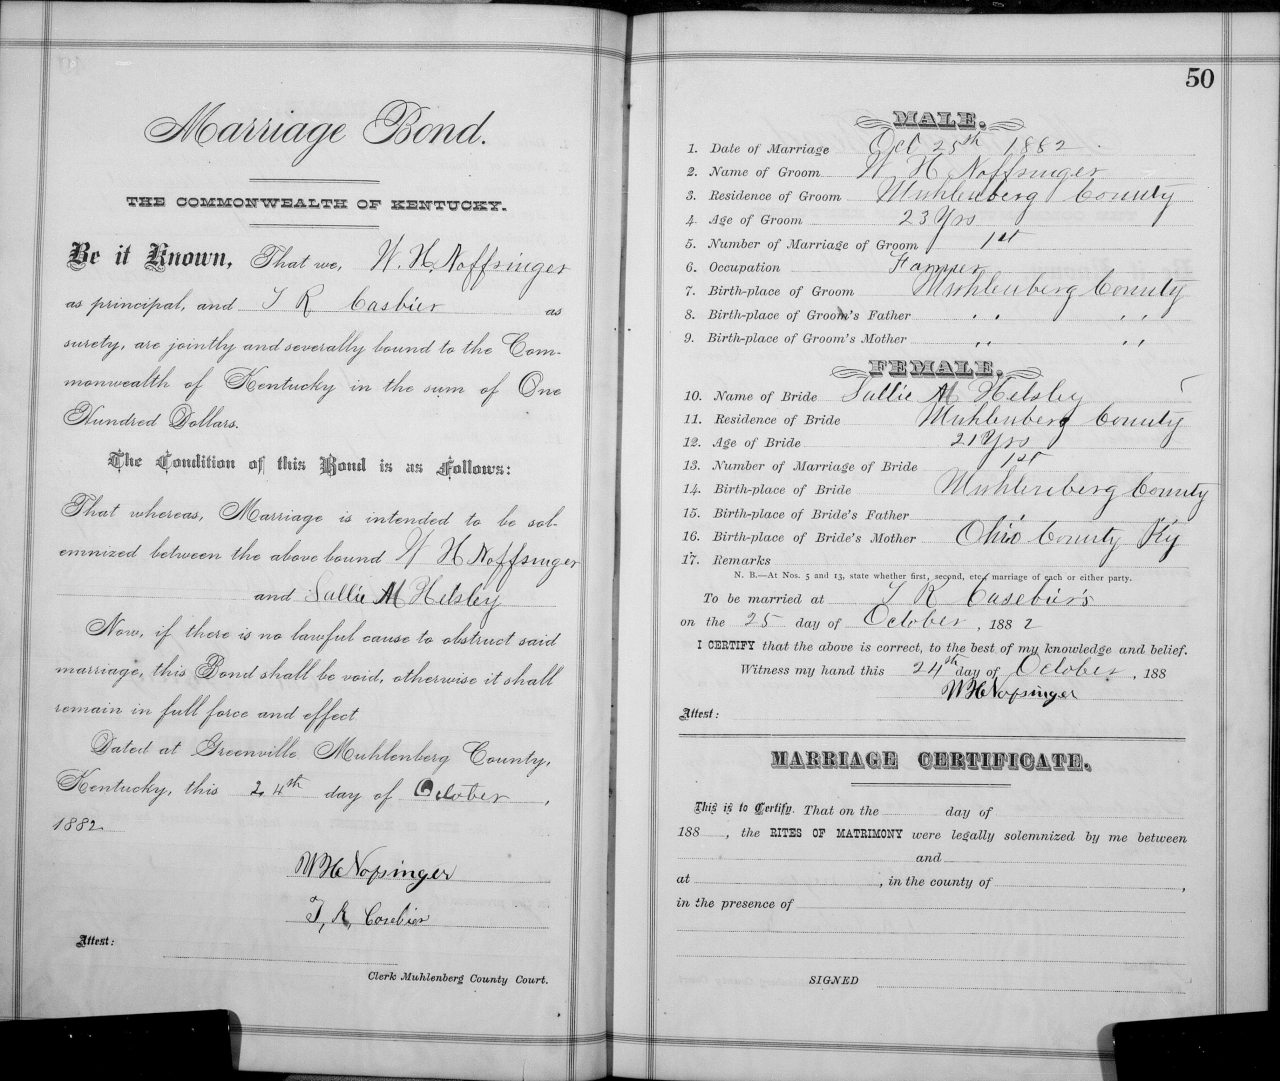 Marriage Bond.
THE COMMONWEALTH OF KENTUCKY.
Be it Known, That we, W. H. Noffsinger
as principal, and T R Casbier as
surety, are jointly and severally bound to the Com-
monwealth of Kentucky in the sum of One
Hundred Dollars.
The Condition of this Bond is as Follows:
That whereas, Marriage is intended to be sol-
emnized between the above bound W H Noffsinger
and Sallie M Helsley
Now, if there is no lawful cause to obstruct said
marriage, this Bond shall be void, otherwise it shall
remain in full force and effect
Dated at Greenville Muhlenberg County,
Kentucky, this 24th day of October,
1882
W H Nofsinger
T, R, Casebier
Attest:
Clerk Muhlenberg County Court.
50
MALE.
1. Date of Marriage Oct 25th 1882
2. Name of Groom W H Noffsinger
3. Residence of Groom Muhlenberg County
4. Age of Groom 23 Yrs
5. Number of Marriage of Groom 1st
6. Occupation Farmer
7. Birth-place of Groom Muhlenberg County
8. Birth-place of Groom's Father " "
9. Birth-place of Groom's Mother " "
FEMALE.
10. Name of Bride Sallie M Helsley
11. Residence of Bride Muhlenberg County
12. Age of Bride 21 Yrs
13. Number of Marriage of Bride 1st
14. Birth-place of Bride Muhlenberg County
15. Birth-place of Bride's Father "
16. Birth-place of Bride's Mother Ohio County Ky
17. Remarks
N. B.—At Nos. 5 and 13, state whether first, second, etc., marriage of each or either party.
To be married at T R Casebier's
on the 25 day of October, 1882
I CERTIFY that the above is correct, to the best of my knowledge and belief.
Witness my hand this 24th day of October, 188
W H Nofsinger
Attest:
MARRIAGE CERTIFICATE.
This is to Certify, That on the day of
188 , the RITES OF MATRIMONY were legally solemnized by me between
and
at , in the county of ,
in the presence of
SIGNED